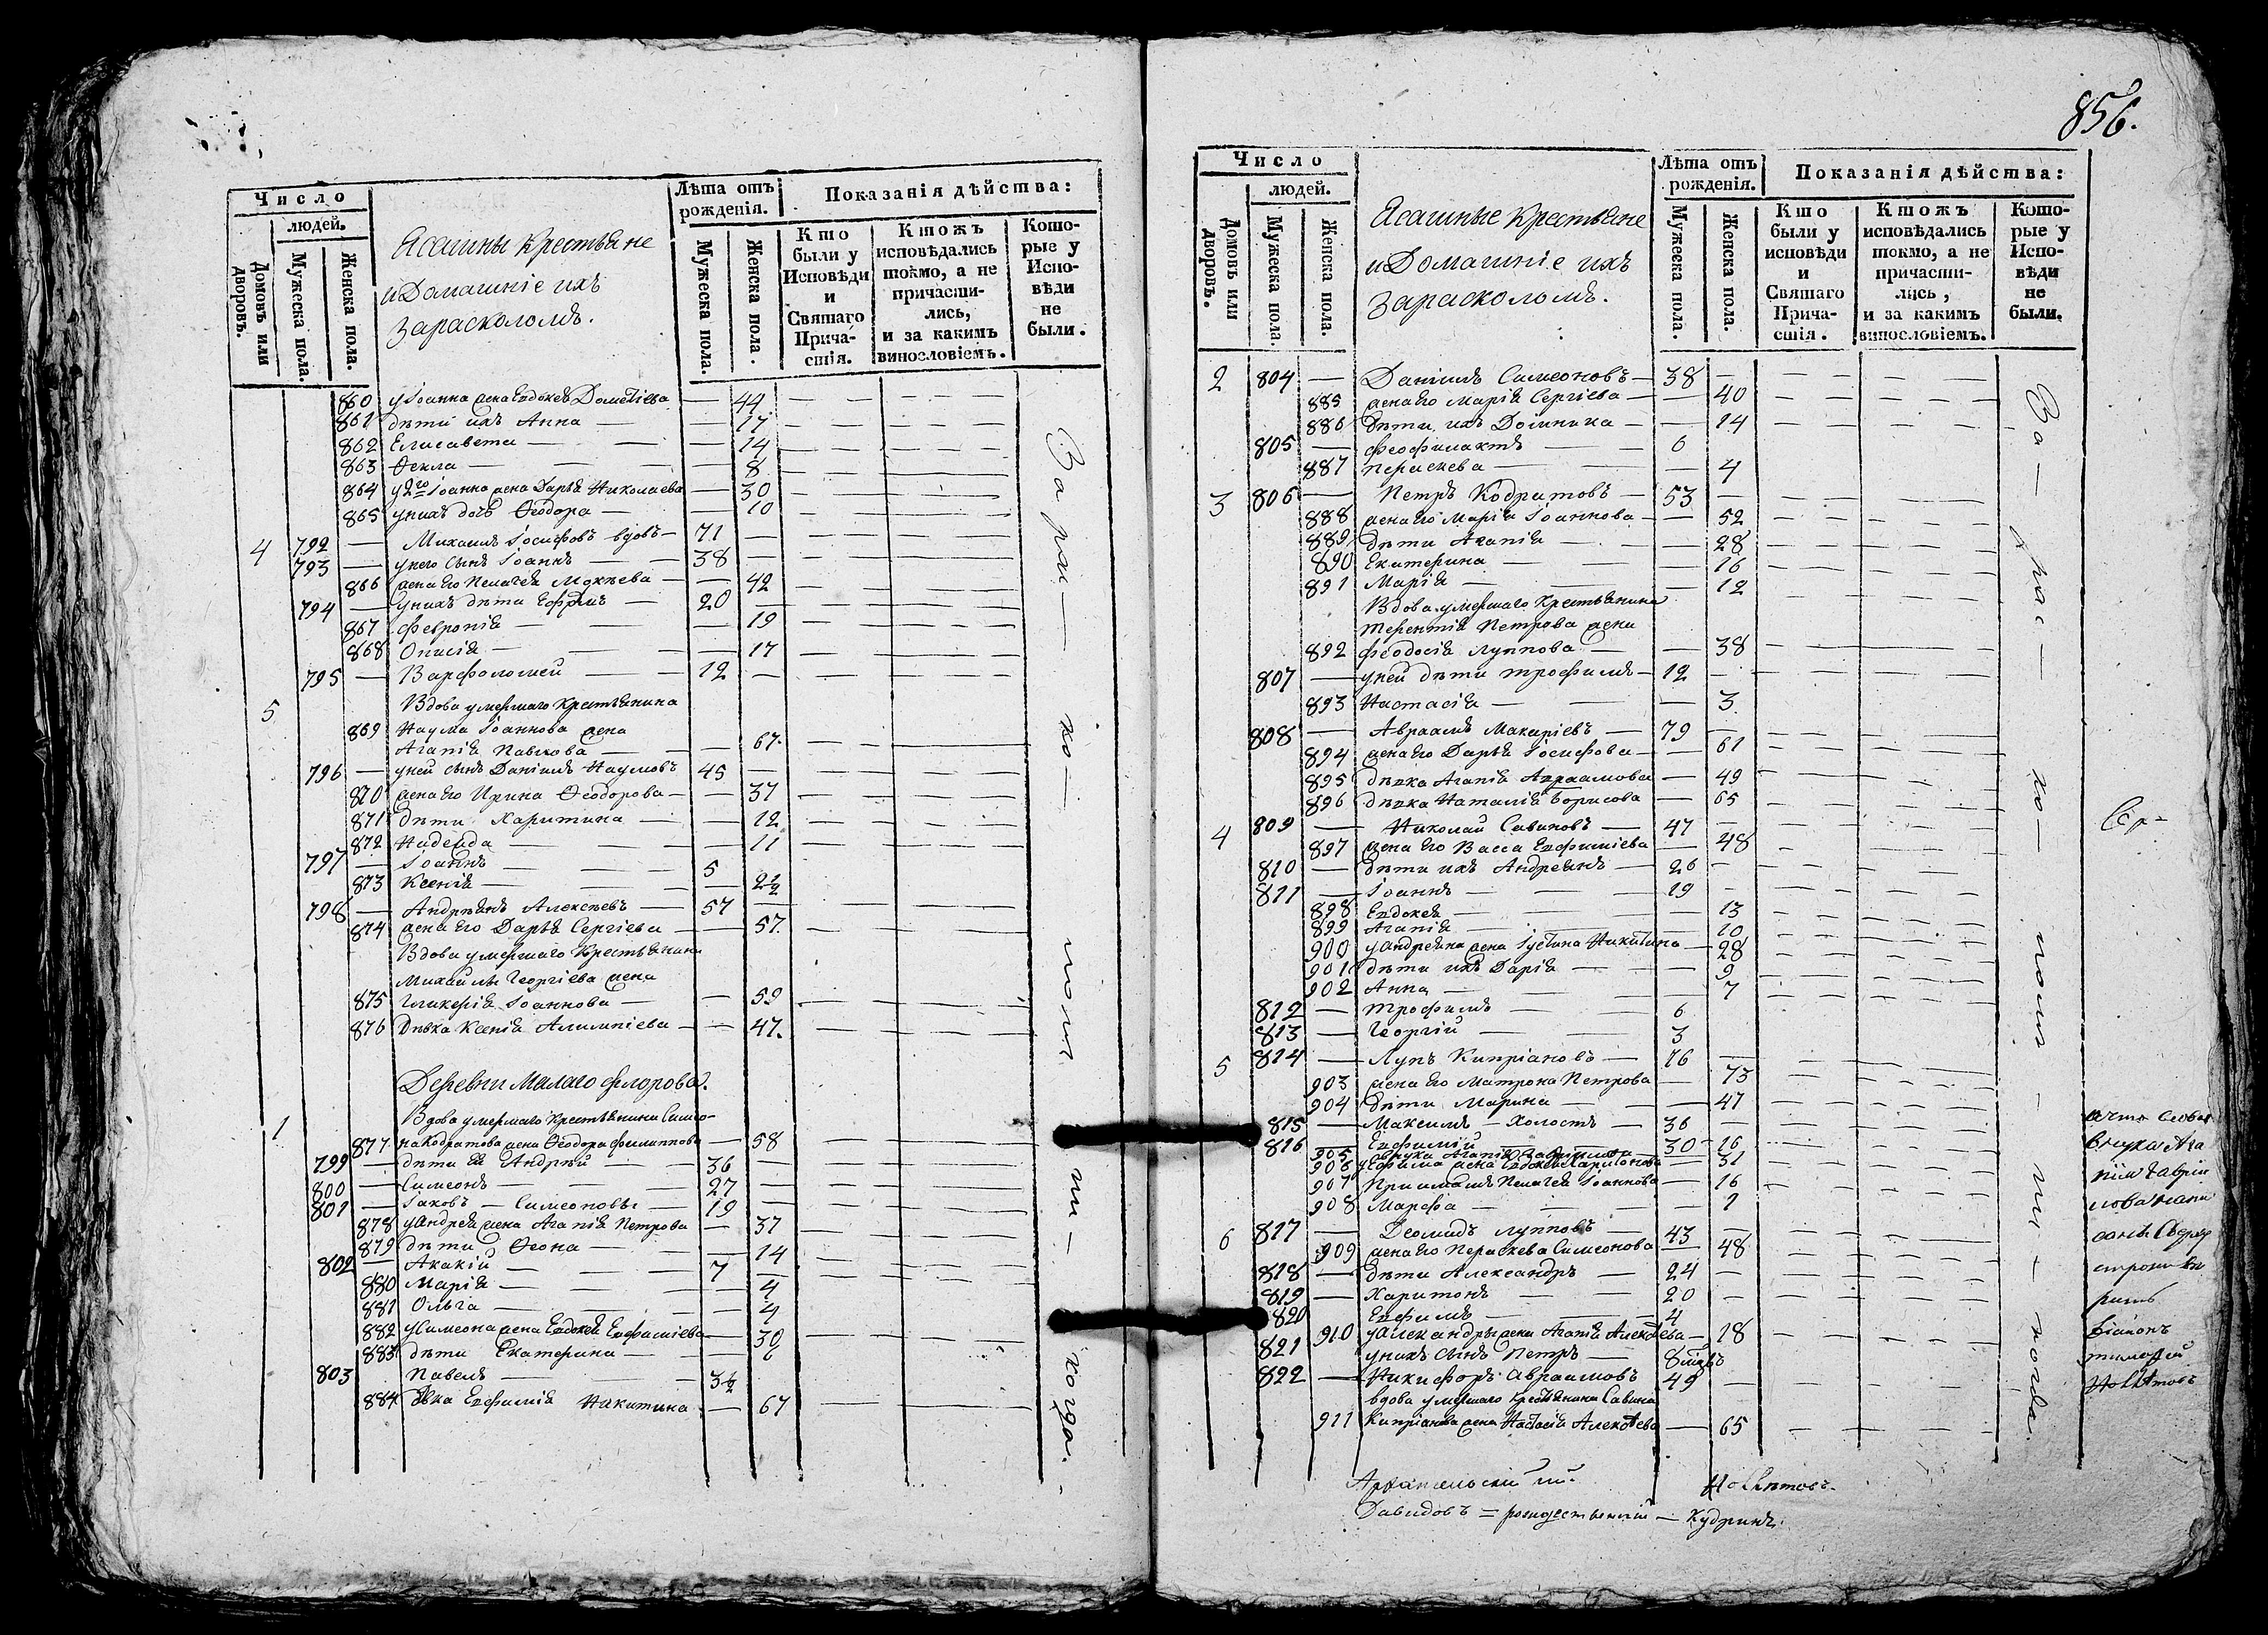 Число
людей.
Домовъ или дворовъ.
Мужеска пола.
Женска пола.
Ясашны крестьяне
и Домашніе ихъ
за расколомъ.
Лѣта отъ рожденія.
Мужеска пола.
Женска пола.
Показанія дѣйства:
Кто были у Исповѣди и Святаго Причастія.
Ктожъ исповѣдались токмо, а не причастились, и за какимъ винословіемъ.
Которые у Исповѣди не были.
860 у Іоанна жена Евдокея Дометіева — 44
861 дѣти ихъ Анна — 17
862 Елисавета — 14
863 Ѳекла — 8
864 у 2го Іоанна жена Дарья Николаева — 30
865 у нихъ дочь Ѳеодора — 10
4 792 — Михаилъ Іосифовъ вдовъ — 71
793 — у него сынъ Іоаннъ — 38
866 жена его Пелагея Мокѣева — 42
794 — у нихъ дѣти Ефремъ — 20
867 Февронія — 19
868 Описія — 17
795 — Варфоломей — 12
5 Вдова умершаго Крестьянина
869 Наума Іоаннова жена
Агапія Павлова — 67
796 — у ней сынъ Даніилъ Наумовъ 45
870 жена его Ирина Ѳеодорова — 37
871 дѣти Харитина — 12
872 Надежда — 11
797 — Іоаннъ — 5
873 Ксенія — 2½
798 — Андреянъ Алексѣевъ — 57
874 жена его Дарья Сергіева — 57
Вдова умершаго Крестьянина
Михайлы Георгіева жена
875 Гликерія Іоаннова — 59
876 Дѣвка Ксенія Алимпіева — 47
Деревни Малаго Флорова.
1 Вдова умершаго крестьянина Симео-
877 на Кодратова жена Ѳеодора Филиппова — 58
799 — дѣти ея Андрей — 36
800 — Симеонъ — 27
801 — Іаковъ — Симеоновы — 19
878 у Андрея жена Агапія Петрова — 37
879 дѣти Ѳеона — 14
802 — Акакій — 7
880 Марія — 4
881 Ольга — 4
882 у Симеона жена Евдокея Евфиміева — 30
883 дѣти Екатерина — 6
803 Павелъ — 3½
884 дѣвка Евфимія Никитина — 67
За рас — ко — ломъ — ни — когда.
856.
Число
людей.
Домовъ или дворовъ.
Мужеска пола.
Женска пола.
Ясашные Крестьяне
и Домашніе ихъ
за расколомъ.
Лѣта отъ рожденія.
Мужеска пола.
Женска пола.
Показанія дѣйства:
Кто были у исповѣди и Святаго Причастія.
Ктожъ исповѣдались токмо, а не причастились, и за какимъ винословіемъ.
Которые у Исповѣди не были.
2 804 — Даніилъ Симеоновъ — 38
885 жена его Марія Сергіева — 40
886 дѣти ихъ Домника — 14
805 — Феофилактъ — 6
887 Параскева — 4
3 806 — Петръ Кодратовъ — 53
888 жена его Марія Іоаннова — 52
889 дѣти Агапія — 28
890 Екатерина — 16
891 Марія — 12
Вдова умершаго Крестьянина
Терентія Петрова жена
892 Феодосія Луппова — 38
807 — у ней дѣти Трофимъ — 12
893 Настасія — 3
808 — Авраамъ Макаріевъ — 79
894 жена его Дарья Іосифова — 61
895 дѣвка Агапія Авраамова — 49
896 дѣвка Наталія Борисова — 65
4 809 — Николай Савиновъ — 47
897 жена его Васса Евфиміева — 48
810 — дѣти ихъ Андреянъ — 26
811 — Іоаннъ — 19
898 Евдокея — 13
899 Агапія — 10
900 у Андреяна жена Іустина Никитина — 28
901 дѣти ихъ Дарія — 9
902 Анна — 7
812 — Трофимъ — 6
813 — Георгій — 3
5 814 — Лупъ Кипріановъ — 76
903 жена его Матрона Петрова — 73
904 дѣти Марина — 47
815 — Максимъ — Холостъ — 36
816 — Евфимій — 30
905 внука Агапія Гавриилова — 16
906 у Ефима жена Евдокея Харитонова — 31
907 Пріимышъ Пелагея Іоаннова — 16
908 Марфа — 1
6 817 — Деомидъ Лупповъ — 43
909 жена его Параскева Симеонова — 48
818 — дѣти Александръ — 24
819 — Харитонъ — 20
820 Евфимъ — 4
910 у Александры жена Агапія Алексѣева — 18
821 у нихъ сынъ Петръ — 8 мѣсъ
822 — Никифоръ Авраамовъ 49
вдова умершаго Крестьянина Савина
911 Кипріанова жена Настасія Алексѣева — 65
За — рас — ко — ломъ — ни — когда.
внука Ага
піи Гаврии
лова
Діаконъ
Архангельскій
Давидовъ = рождественскій — Кудринъ.